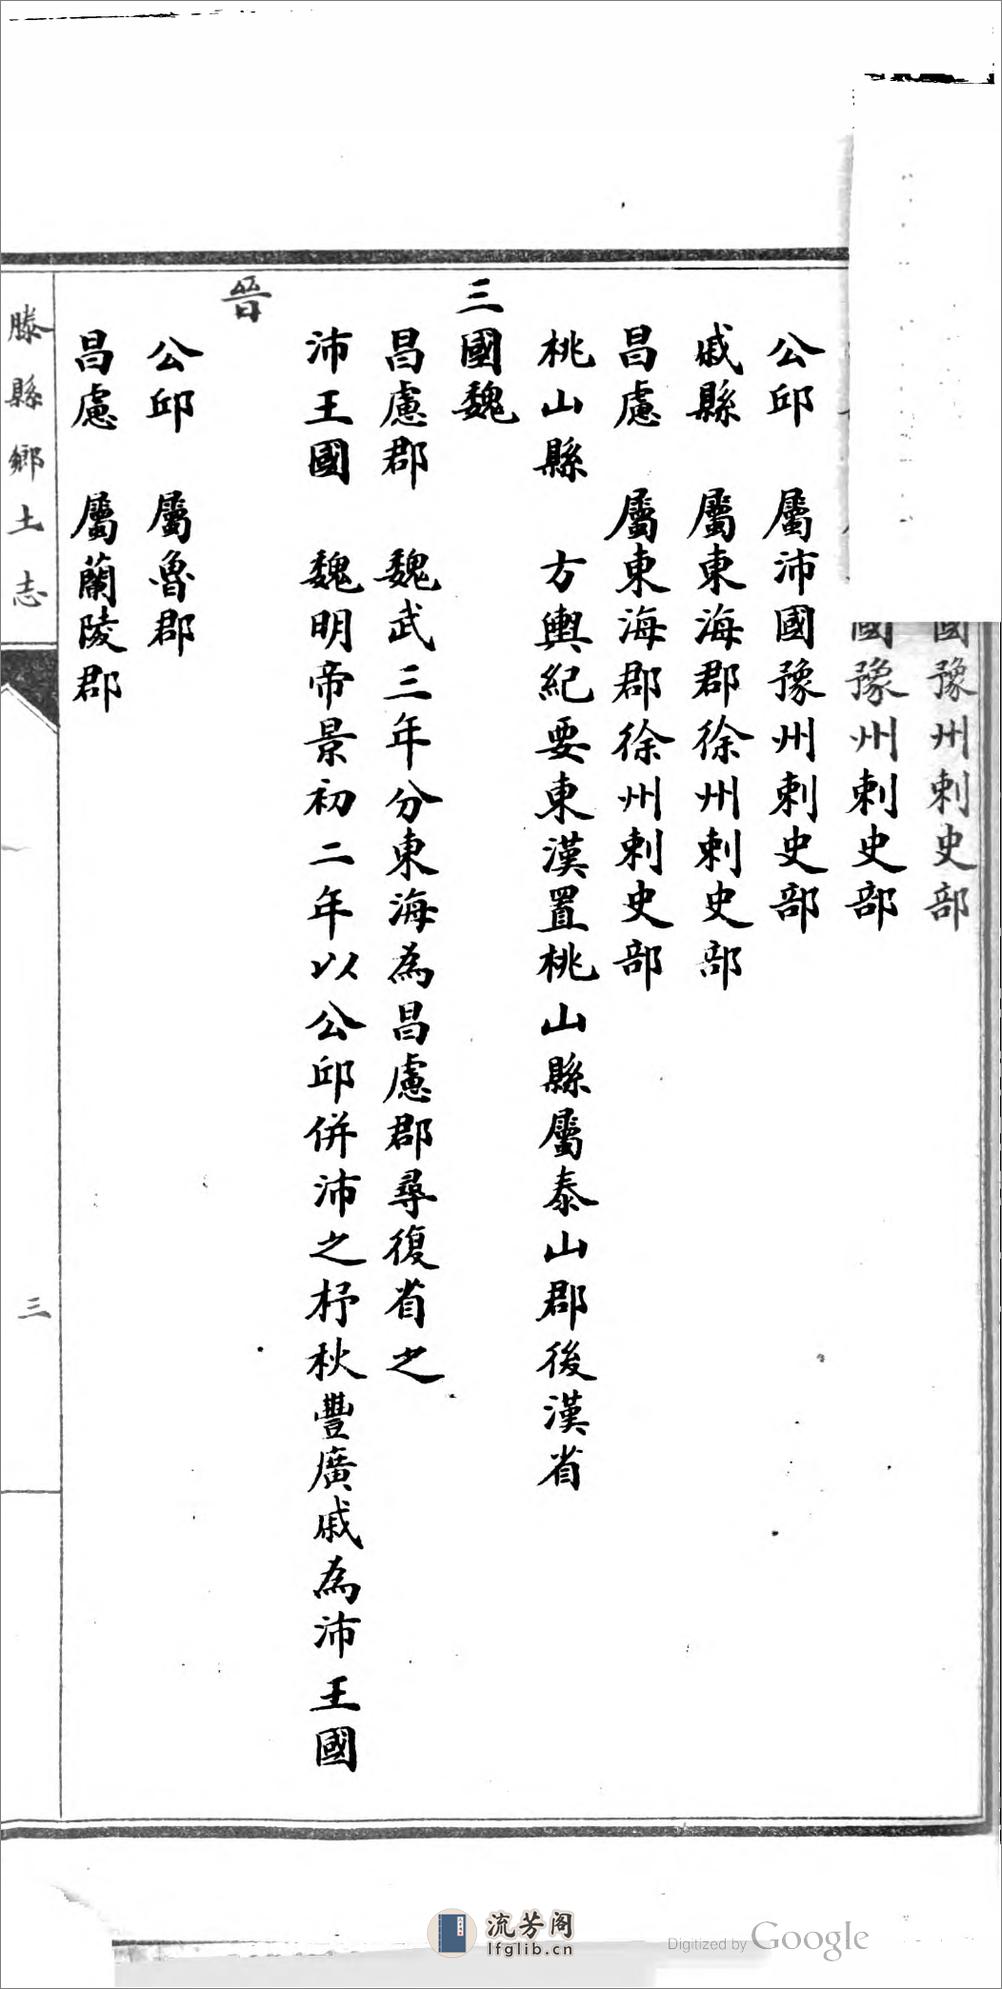 國豫州刺史部
國豫州刺史部
公邱　屬沛國豫州刺史部
戚縣　屬東海郡徐州刺史部
昌慮　屬東海郡徐州刺史部
桃山縣　方輿紀要東漢置桃山縣屬泰山郡後漢省
三國魏
昌慮郡　魏武三年分東海為昌慮郡尋復省之
沛王國　魏明帝景初二年以公邱併沛之杼秋豐廣戚為沛王國
晉
公邱　屬魯郡
昌慮　屬蘭陵郡
滕縣鄉土志
三
流芳阁
lfglib.cn
Digitized by Google